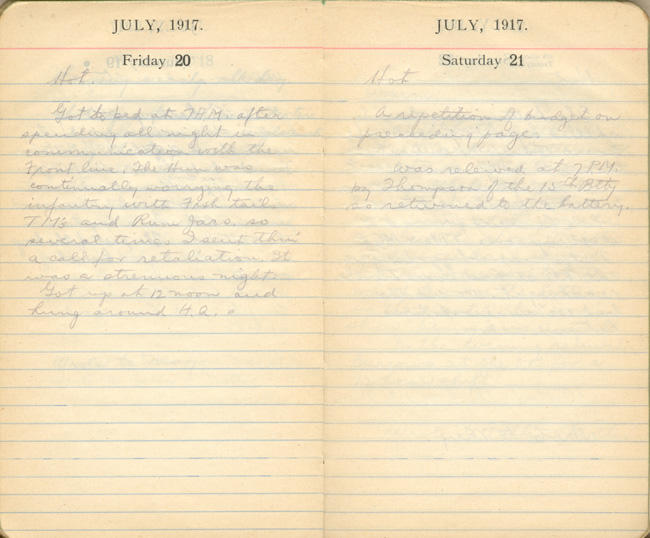 JULY, 1917.
Friday 20
Hot.
Got to bed at 7AM. after
spending all night in
communication with the
Front line. The Hun was
continually worrying the
infantry with Fish tail
TM's and Rum Jars. so
several times I sent thru
a call for retaliation. It
was a strenuous night.
Got up at 12 noon and
hung around H.Q.
JULY, 1917.
Saturday 21
Hot
A repetition of budget on
preceeding page.
Was relieved at 7 PM.
by Thompson of the 15th Btty
so returned to the battery.